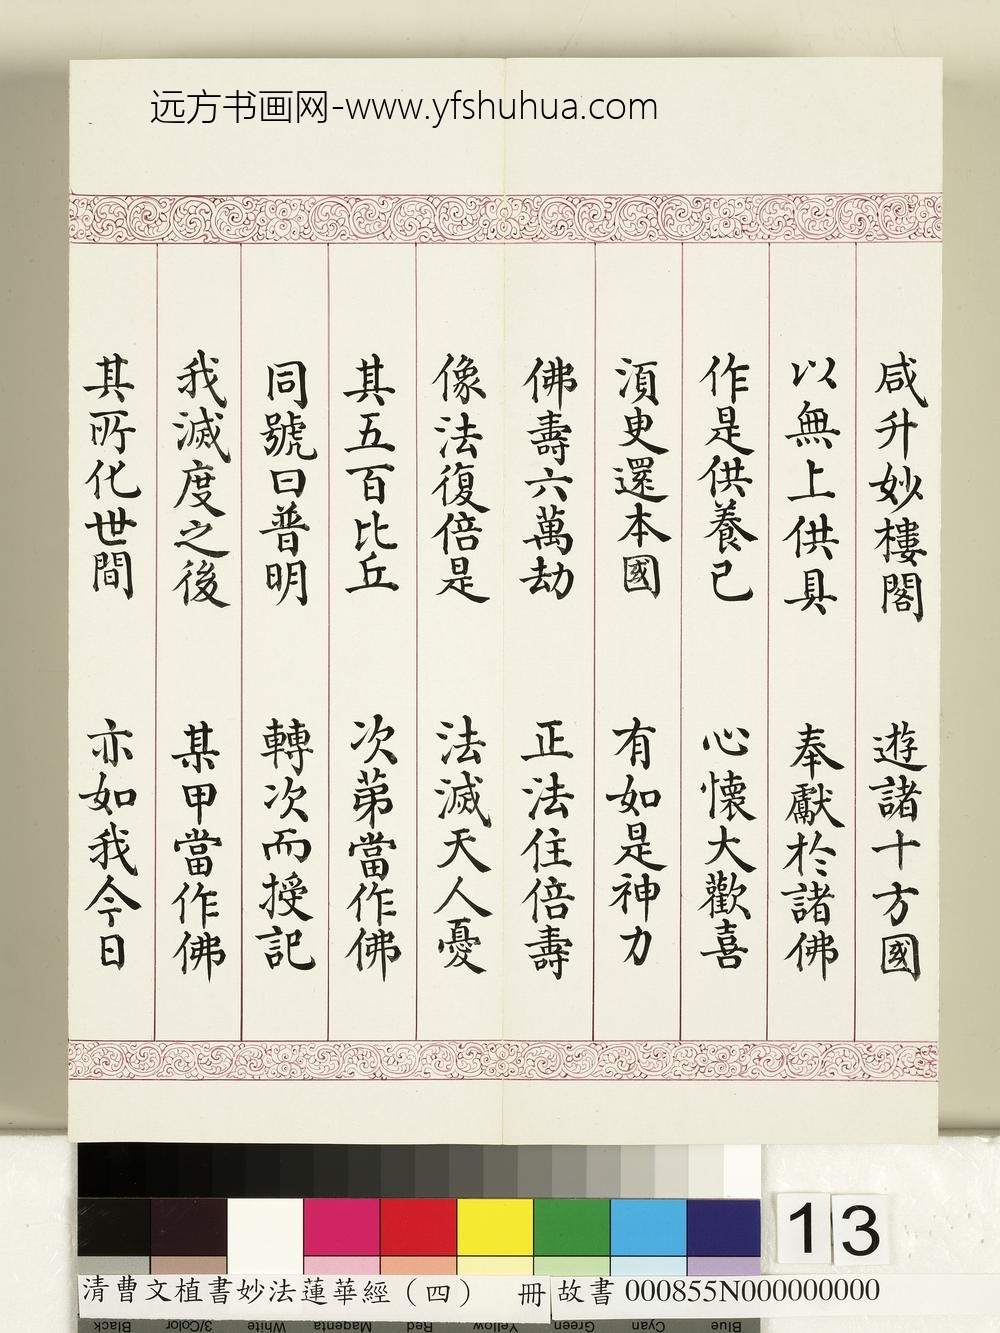 远方书画网-www.yfshuhua.com
咸升妙樓閣 遊諸十方國
以無上供具 奉獻於諸佛
作是供養已 心懷大歡喜
須臾還本國 有如是神力
佛壽六萬劫 正法住倍壽
像法復倍是 法滅天人憂
其五百比丘 次第當作佛
同號曰普明 轉次而授記
我滅度之後 某甲當作佛
其所化世間 亦如我今日
13
清曹文植書妙法蓮華經（四） 冊 故書 000855N000000000
Black 3/Color White Magenta Red Yellow Green Cyan Blue